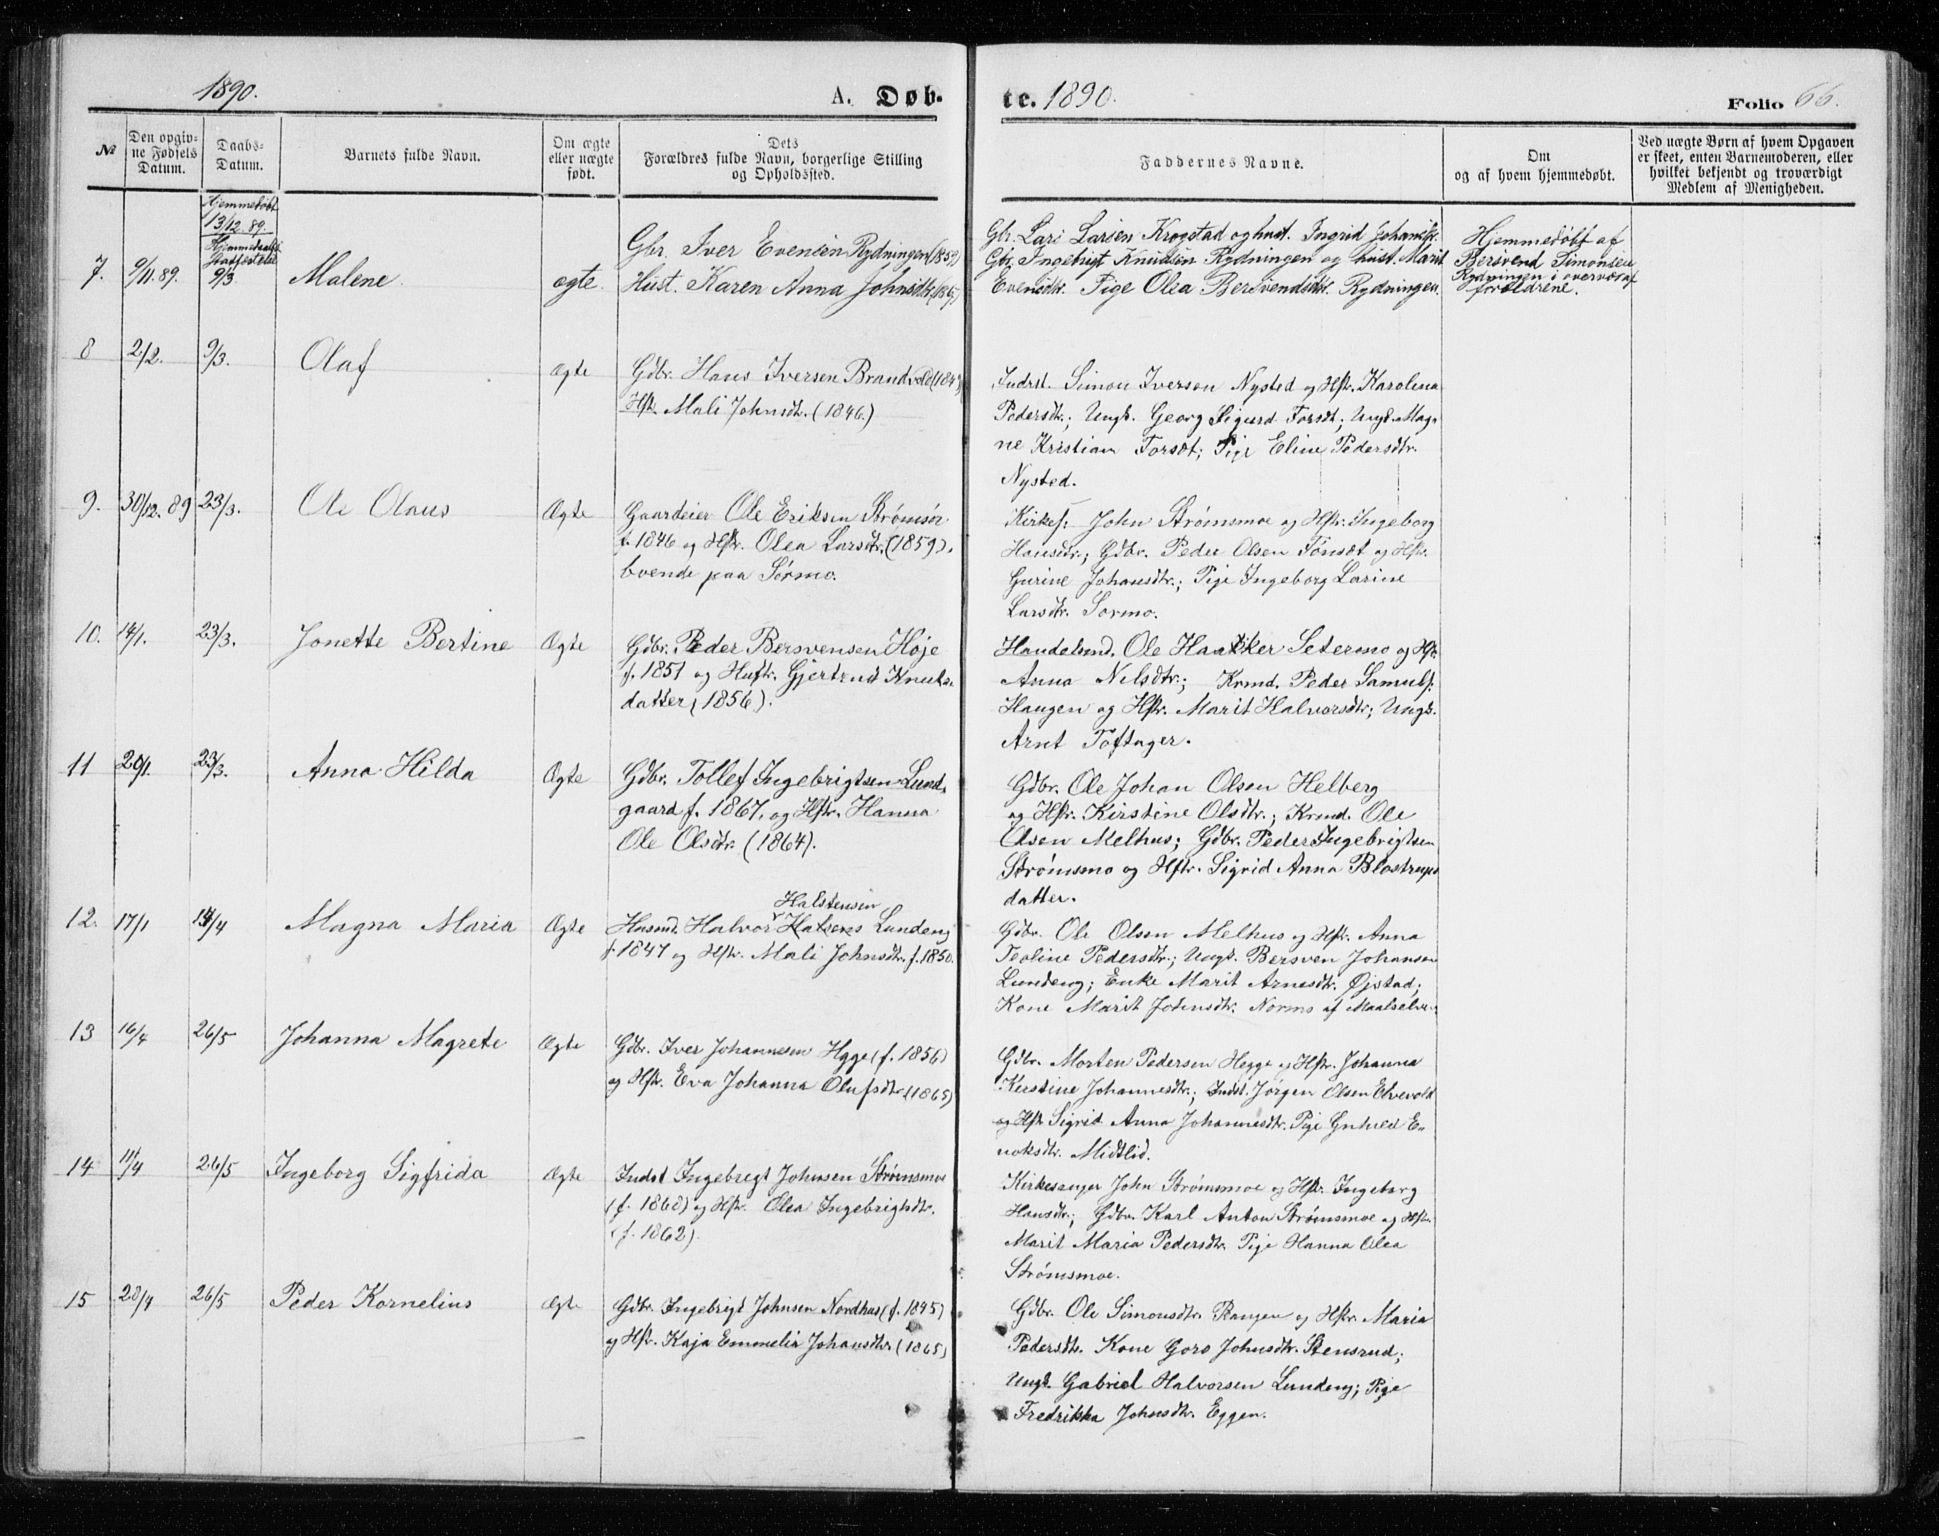 1890.
A. Døb.
te. 1890.
Folio 66.
№
Den opgiv-
ne Fødsels
Datum.
Daabs-
Datum.
Barnets fulde Navn.
Om ægte
eller uægte
født.
Dets
Forældres fulde Navn, borgerlige Stilling
og Opholdssted.
Faddernes Navne.
Om
og af hvem hjemmedøbt.
Ved uægte Børn af hvem Opgaven
er skeet, enten Barnemoderen, eller
hvilket bekjendt og troværdigt
Medlem af Menigheden.
Hjemmedøbt
13/12. 89.
7. 9/11. 89. 9/3 Malene. ægte.
Gbr. Iver Evensen Rydningen (1859)
Hust. Karen Anna Johnsdtr.
Gbr. Lars Larsen Krogstad og hust. Ingrid
Gbr. Ingebrigt Knudsen Rydningen og hust. Marit
Evensdtr. Pige Olea Bersvendsdtr. Rydningen.
Hjemmedøbt af
Bersvend Simonsen
Rydningen i overvær af
forældrene.
8 2/2. 9/3. Olaf Ægte
Gdbr. Hans Iversen Brandvold
Hstr. Mali Johnsdtr. (1846)
Indrst. Simon Iversen Nysted og Hstr. Karolina
Pedersdtr.; Ungk. Georg Sigurd Forsdt; Ungk. Mag-
ne Kristian Forsæt; Pige Eline Pedersdtr.
Nysted.
9. 30/12. 89 23/3. Ole Olaus Ægte
Gaardeier Ole Eriksen Strømsør
f. 1846 og Hstr. Olea Larsdtr. (1859).
boende paa Sørmo.
Kirkes. John Strømsmoe og Hstr. Ingeborg
Hansdtr.; Gdbr. Peder Olsen Fönsæt og Hstr.
Gurine Johansdtr.; Pige Ingeborg Larine
Larsdtr. Sørmo.
10. 14/1. 23/3. Jonette Bertine Ægte
Gdbr. Peder Bersvensen Høje
f. 1851 og Hustr. Gjertrud Knuts-
datter (1856).
Handelsmd. Ole Haakker Setermo og Hstr.
Anna Nilsdtr.; Krmd. Peder Samuls.
Haugen og Hstr. Marit Halvorsdtr; Ungk.
Arnt Toftager.
11 20/1. 23/3. Anna Hilda Ægte
Gdbr. Tollef Ingebrigtsen Lund-
gaard f. 1867, og Hstr. Hanna
Ole Olsdtr. (1864).
Gdbr. Ole Johan Olsen Helberg
og Hstr. Kirstine Olsdtr.; Krmd. Ole
Olsen Melhus; Gdbr. Peder Ingebrigtsen
Strømsmo og Hstr. Sigrid Anna Blostrups-
datter.
12. 17/1 14/4 Magna Maria Ægte
Halstensen
Husmd. Halvor Lundeng
f. 1847 og Hstr. Mali Johnsdtr. f. 1850.
Gdbr. Ole Olsen Melhus og Hstr. Anna
Teoline Pedersdtr.; Ungk. Bersven Johansen
Lundeng; Enke Marit Arnesdtr. Øjstad;
Kone Marit Johnsdtr. Normo af Maalselv.
13 16/4 26/5 Johanna Magrete Ægte
Gdbr. Iver Johannesen Hgge (f. 1856)
og Hstr. Eva Johanna Olufsdtr. (1865)
Gdbr. Morten Pedersen Hegge og Hstr. Johanna
Kerstine Johannesdtr.; Indst. Jørgen Olsen Elvevold
og Hstr. Sigrid Anna Johannesdtr. Pige Gunhild E-
noksdtr. Midtlid.
14 11/4 26/5 Ingeborg Sigfrida Ægte
Indst Ingebrigt Johnsen Strømsmoe
(f. 1860) og Hstr. Olea Ingebrigtsdtr.
(f. 1862).
Kirkesanger John Strømsmoe og Hstr. Ingeborg
Hansdtr.; Gdbr. Karl Anton Strømsmoe og Hstr.
Marit Maria Pedersdtr. Pige Hanna Olea
Strømsmoe.
15 20/4 26/5 Peder Kornelius Ægte
Gdbr. Ingebrigt Johnsen Nordhus (f. 1845)
og Hstr. Kaja Emmelia Johansdtr. (1865)
Gdbr. Ole Simonsdtr. Haugen og Hstr. Maria
Pedersdtr. Kone Goro Johnsdtr. Stensrud;
Ungk. Gabriel Halvorsen Lundeng; Pige
Fredrikka Johnsdtr. Eggen.